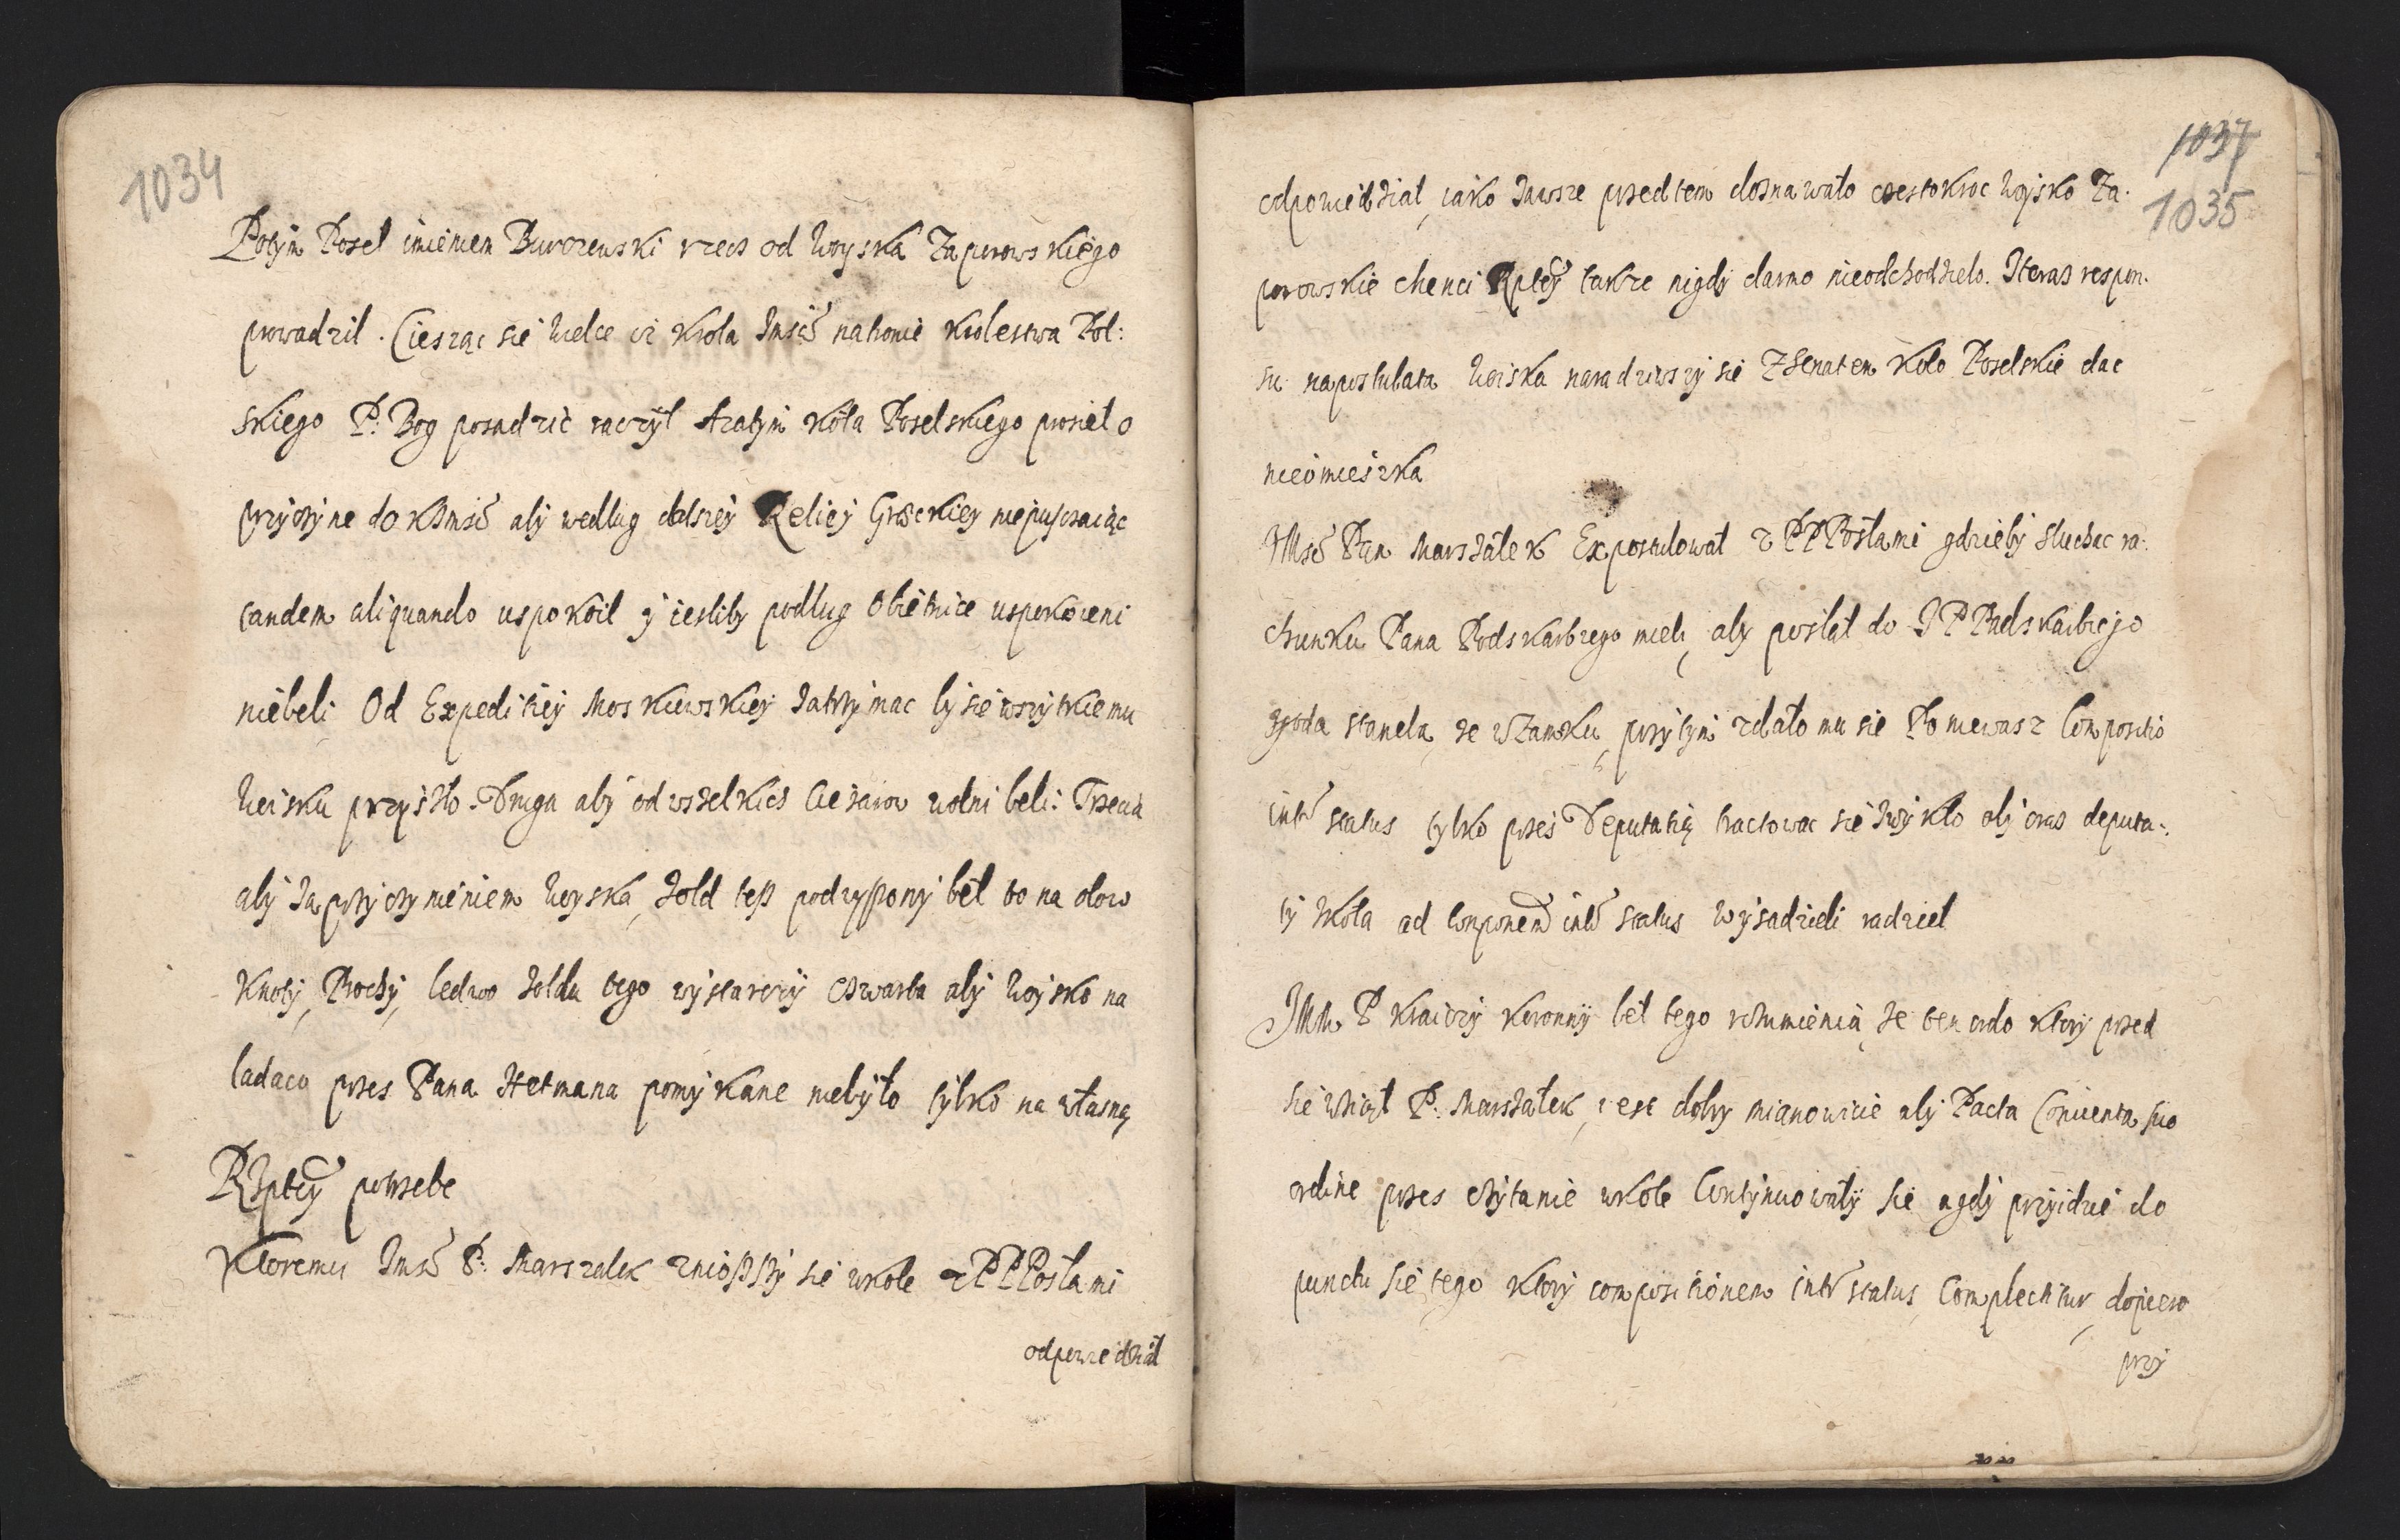 1034
Potym Posel imieniem Burczewski rzecz od Woyska Zaporowskiego
prowadzil. Ciesząc sie Wielce iż Krola Jmsći na tronie Krolestwa Pol:
skiego P: Bog posadzić raczył A zatym Koła Poselskiego prosieł o
przyczyne do KJmsci aby wedlug dalszey Reliey Græckiey niepuszczaiąc
tandem aliquando uspokoil y iesliby podlug Obietnice uspokoieni
niebeli Od Expeditiey Moskiewskiey zatrzymac by sie wszytkiemu
Woisku przyszło. Druga aby od wszelkich Cieżarow wolni beli: Trzecia
aby za przyczynieniem Woyska, żołd tesz podwyszszony beł bo na olow
Knoty, Prochy, ledwo żołdu tego wystarczy Czwarta aby Woysko na
ladaco przes Pana Hetmana pomykane niebyło tylko na własną
Rzptey potrzebe
Ktoremu Jmsć P: Marszalek zniosszy sie w kole z PPPosłami
odpowiedział
1037
1035
odpowiedział, iako zawsze przedtem doznawało czestokroc Woysko Za:
porowskie chenci Rptey takze nigdy darmo nieodchodzielo. I teraz respon:
su na postulata Woiska naradziwszy sie z Senatem Koło Poselskie dac
nieomieszka
JMsć Pan Marszałek Expostulował z PPPosłami gdzieby sluchac ra:
chunku Pana Podskarbiego mieli, aby posłał do JPPodskarbiego
zgoda stanela, ze w Zamku, przytym zdało mu sie Poniewasz Compositio
inter status tylko przes Deputatią tractowac sie zwykło aby oraz deputa:
ty z Koła ad componend inter status wysadzieli radzieł
JMM P Kraiczy Koronny beł tego rozumienia, że ten ordo ktory przed
sie wział P: Marszałek, iest dobry mianowicie aby Pacta Conventa suo
ordine przes czytanie w kole Continuowały sie a gdy przyidzie do
punctu sie tego ktory compositionem inter status, Complectitur, dopiero
przy